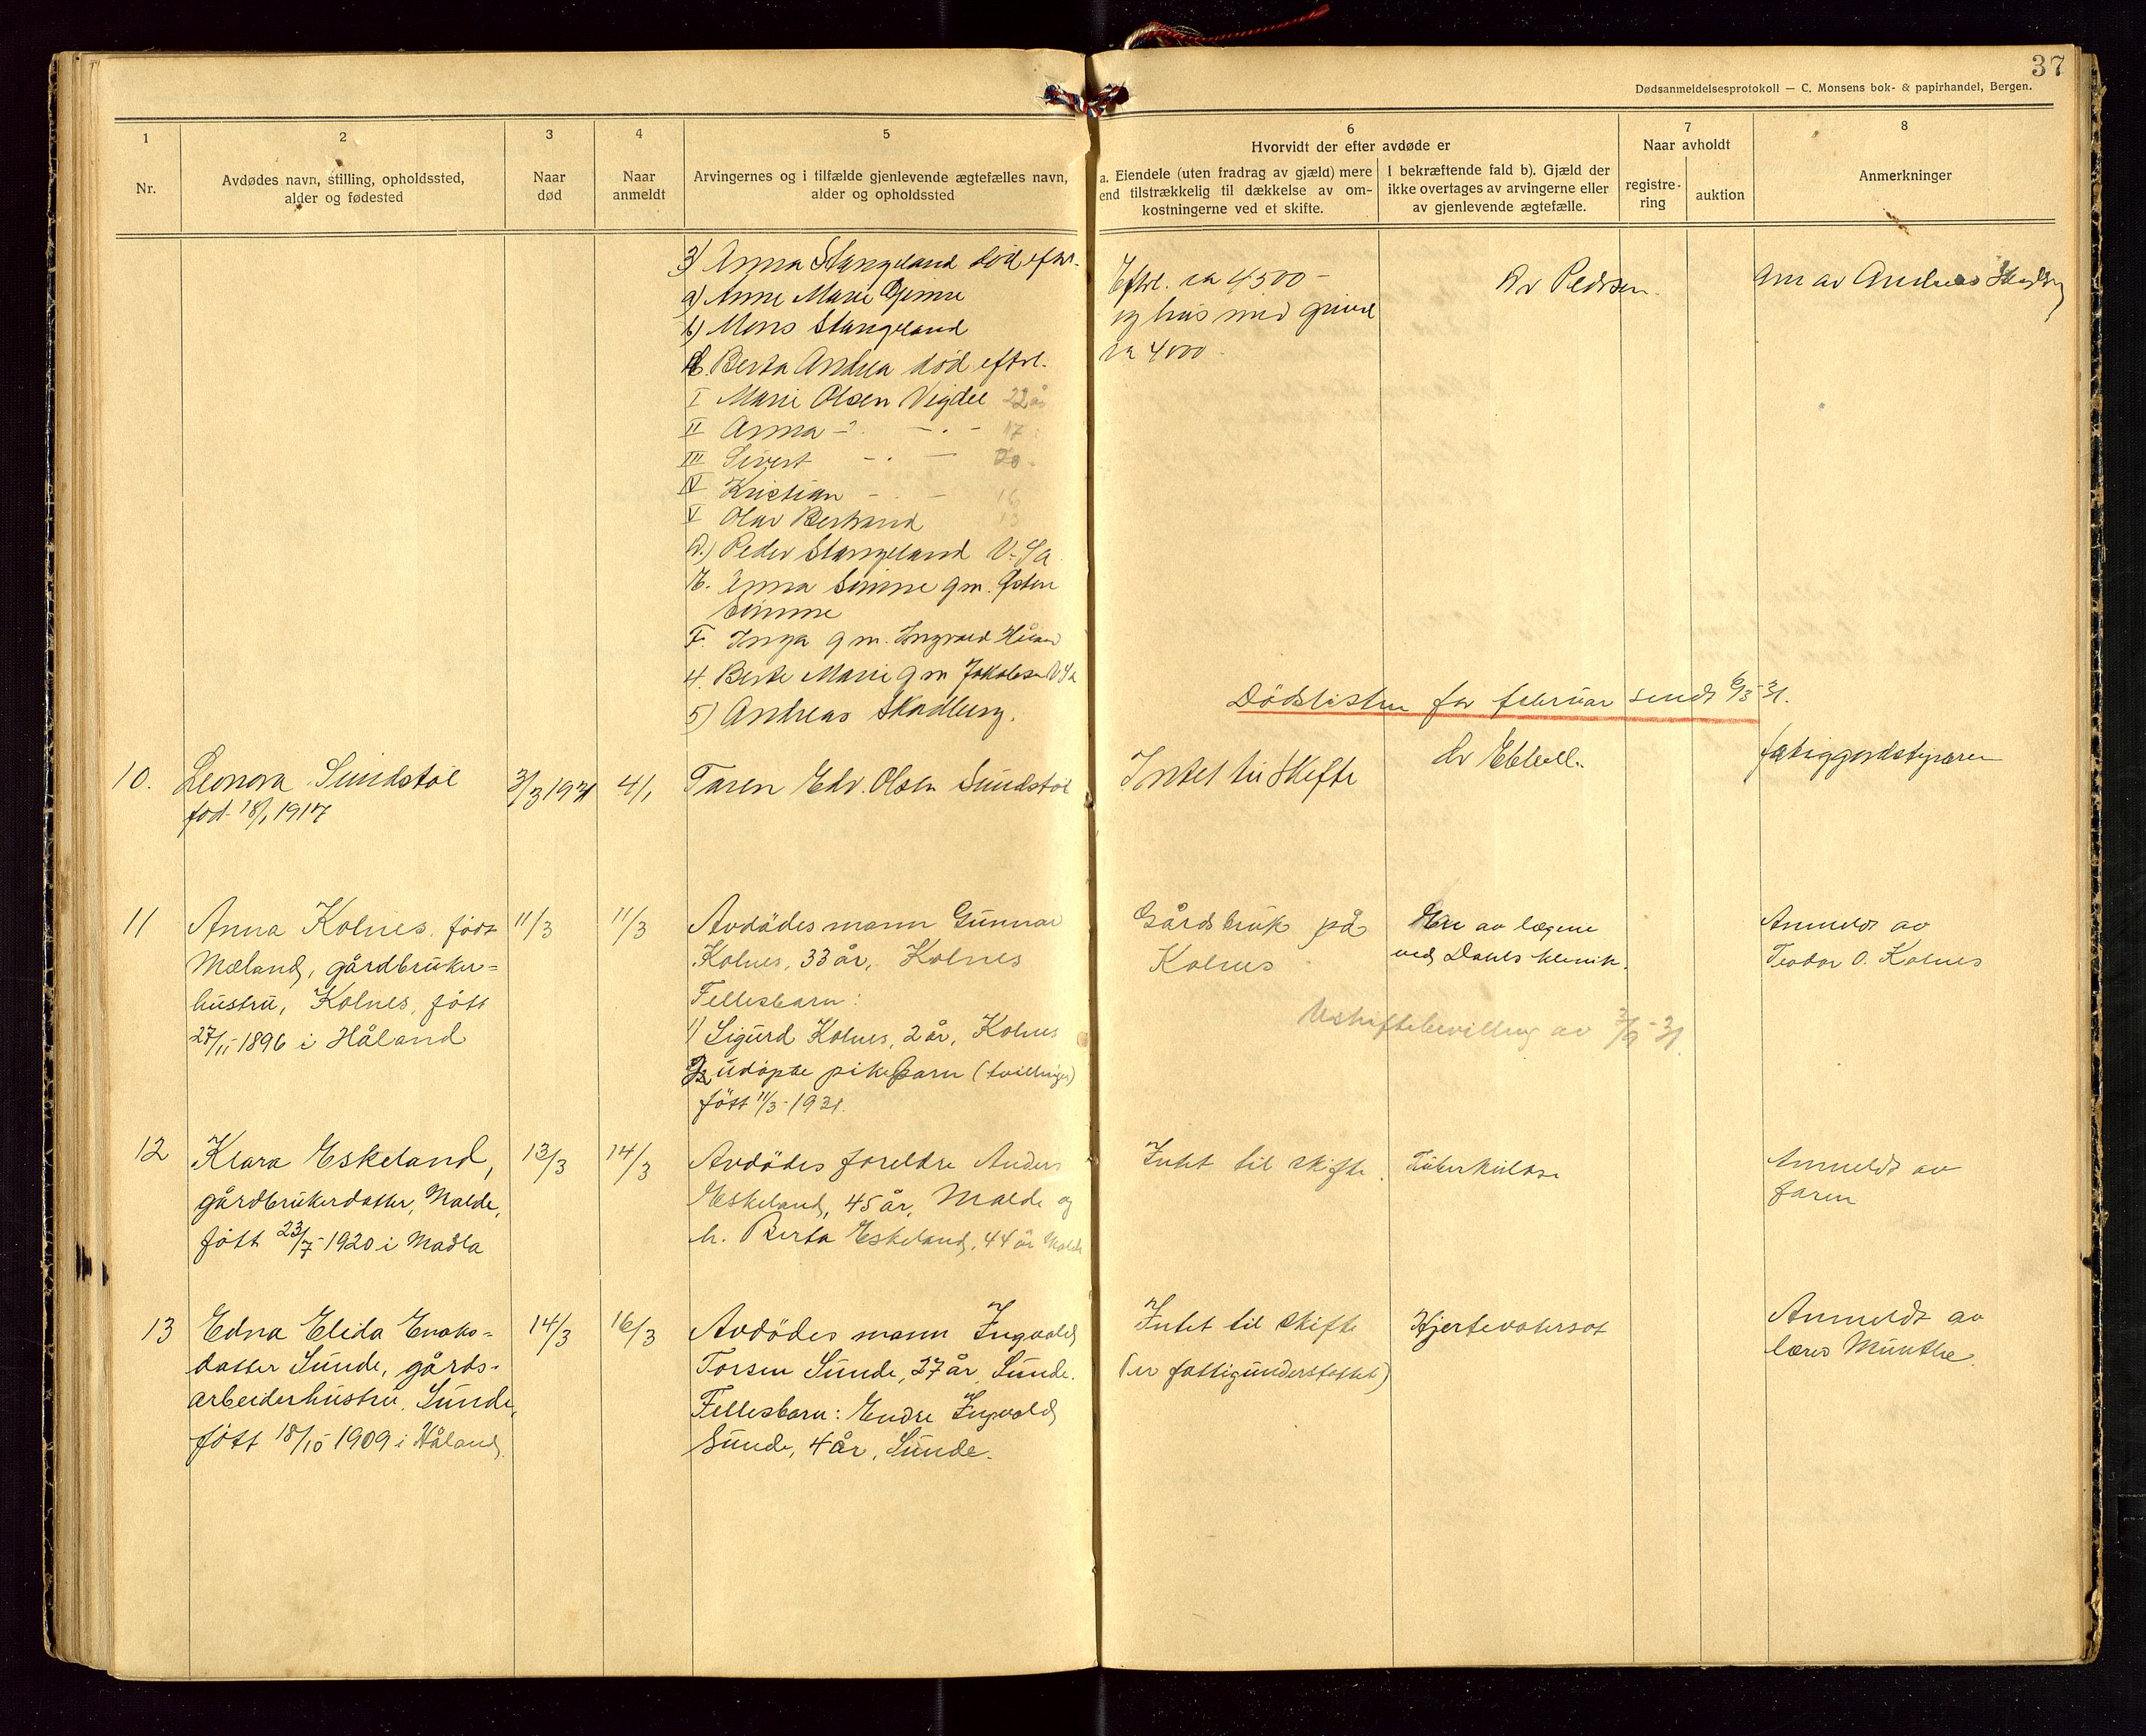 37
Dødsanmeldelsesprotokoll — C. Monsens bok- & papirhandel, Bergen.
1
2
3
4
5
6
7
8
Nr.
Avdødes navn, stilling, opholdssted,
alder og fødested
Naar
død
Naar
anmeldt
Arvingernes og i tilfælde gjenlevende ægtefælles navn,
alder og opholdssted
Hvorvidt der efter avdøde er
a. Eiendele (uten fradrag av gjæld) mere
end tilstrækkelig til dækkelse av om-
kostningerne ved et skifte.
I bekræftende fald b). Gjæld der
ikke overtages av arvingerne eller
av gjenlevende ægtefælle.
Naar avholdt
registre-
ring
auktion
Anmerkninger
3) Anna Stangeland död efterl.
a) Anne Marie
b) Mons Stangeland
Berta Andrea död efterl.
I Marie Olsen Vigdel 22 år
II Anna 17
III Sivert 20
IV Kristian 16
V Olav Bertrand 13
D.) Peder Stangeland U.S.a
E. Anna Sömme gm. Östen
Sömme
F. Inga gm. Ingvald
4. Berte Marie gm Jakobsen U.S.a
5) Andreas Skadberg.
Efterl. ca 4500 -
og hus med grund
ca 4000
Dr Pedersen
Anm av Andreas Skadberg
Dödslisten for februar sendt 6/3-31.
10.
Leonora Sundstöl
fød 18/1 1917
3/3 1931
4/1
Faren Edv. Olsen Sundstöl
Intet til skifte
dr Ebbell.
fattiggordstyreren
11
Anna Kolnes, födt
Mæland, gårdbruker=
hustru, Kolnes, fött
27/11-1896 i Håland
11/3
11/3
Avdödes mann Gunnar
Kolnes, 33 år, Kolnes
Fellesbarn:
1) Sigurd Kolnes, 2 år, Kolnes
2 udöpte pikebarn (tvillinger)
fött 11/3-1931.
Gårdsbruk på
Kolnes
En av lægene
ved Dahls klinik.
Uskiftebevilling av 3/9-31
Anmeldt av
Teodor O. Kolnes
12
Klara Eskeland,
gårdbrukerdatter, Malde,
fött 23/7-1920 i Madla
13/3
14/3
Avdödes foreldre Anders
Eskeland, 45 år, Malde og
h. Berta Eskeland, 44 år Malde
Intet til skifte.
Tuberkulose
Anmeldt av
faren
13
Edna Elida Enoks=
datter Sunde, gårds=
arbeiderhustru, Sunde,
fött 18/10 1909 i Håland
14/3
16/3
Avdödes mann Ingvald
Torsen Sunde, 27 år, Sunde.
Fellesbarn: Endre Ingvald
Sunde, 4 år, Sunde.
Intet til skifte
(er fattigunderstöttet)
Hjertevatersot
Anmeldt av
lærer Munthe